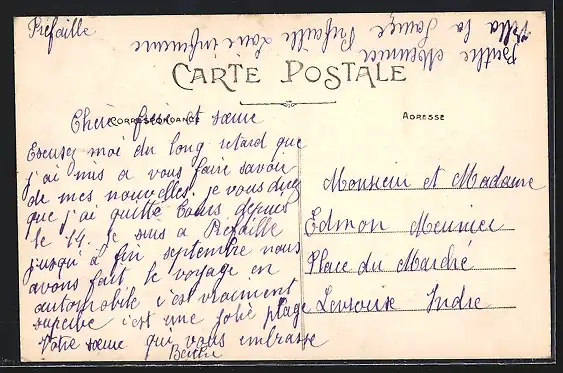 Préfaille
Berthe Meunier
Villa la Sauge Préfaille Loire inférieure
CARTE POSTALE
CORRESPONDANCE
ADRESSE
Cher frère et sœur
Excusez moi du long retard que
j'ai mis a vous faire savoir
de mes nouvelles. je vous direz
que j'ai quitté Tours depuis
le 14. je suis a Préfaille
jusqu'à fin septembre nous
avons fait le voyage en
automobile c'est vraiment
superbe c'est une jolie plage
Votre sœur qui vous embrasse
Berthe
Monsieur et Madame
Edmon Meunier
Place du Marché
Levroux Indre